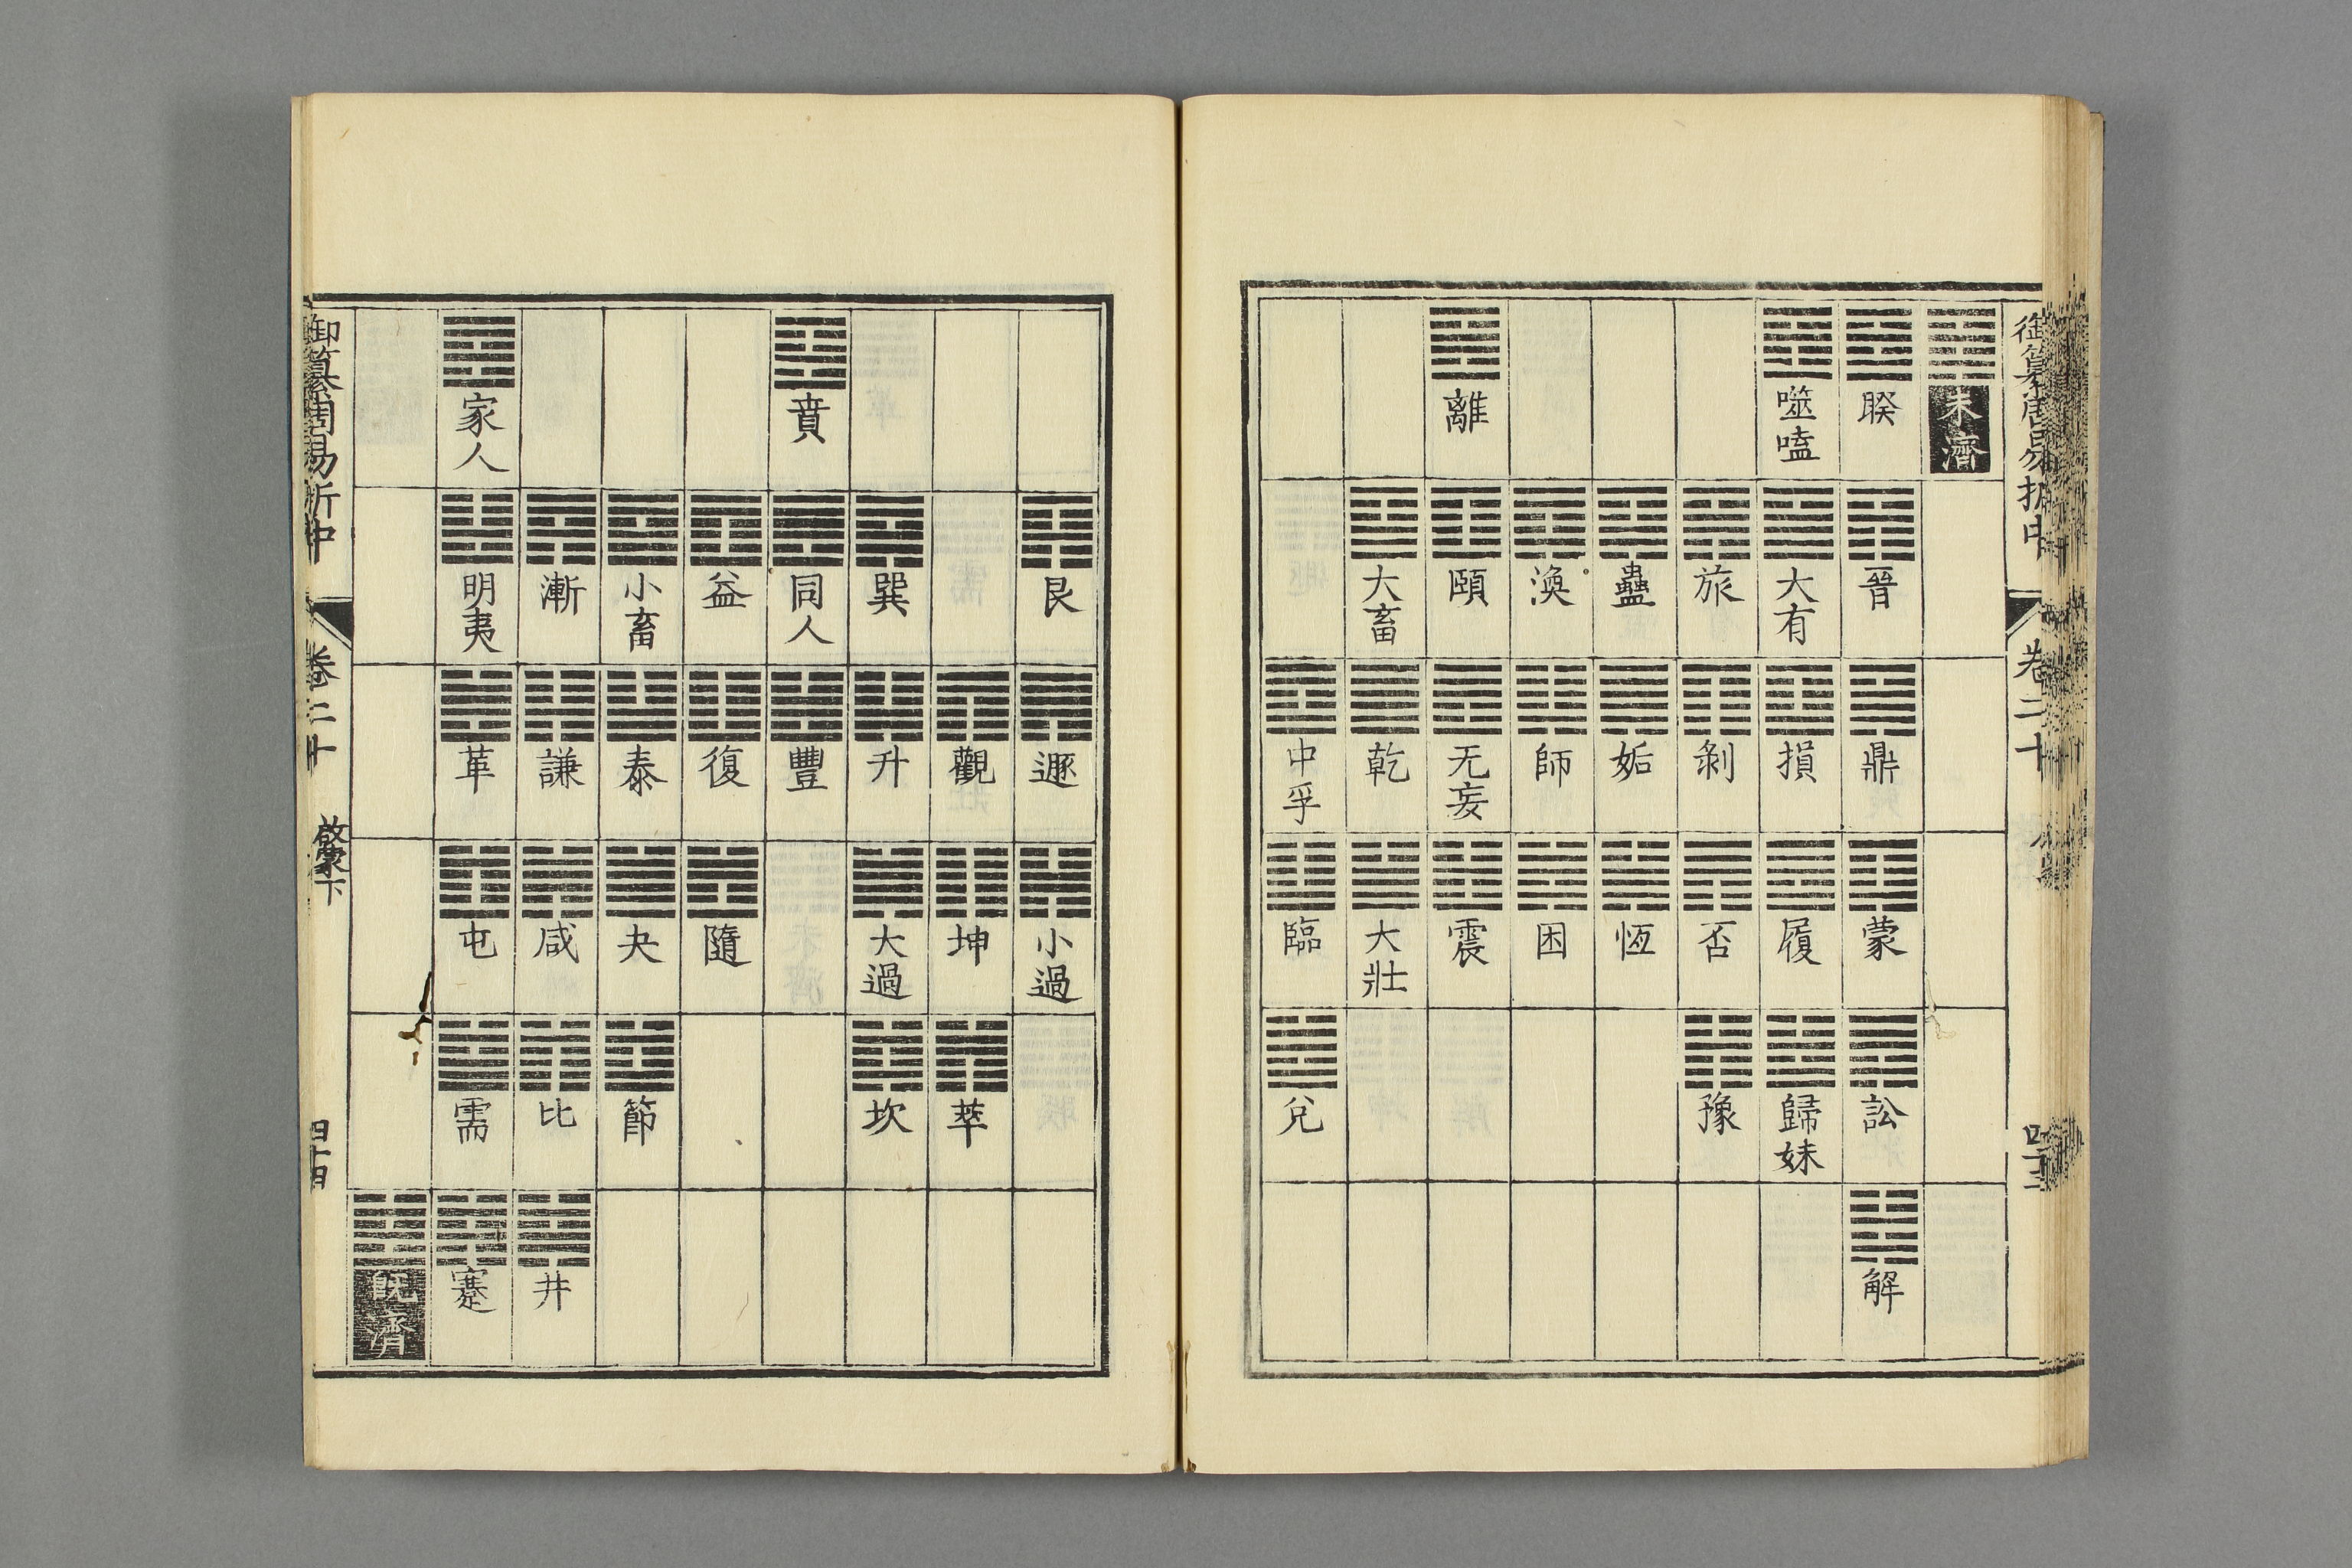 御纂周易折中 卷二十
未濟
睽 晉 鼎 蒙 訟 解
噬嗑 大有 損 履 歸妹
旅 剝 否 豫
蠱 姤 恆
渙 師 困
離 頤 无妄 震
大畜 乾 大壯
中孚 臨 兌
艮 遯 小過
觀 坤 萃
巽 升 大過 坎
賁 同人 豐
益 復 隨
小畜 泰 夬 節
漸 謙 咸 比 井
家人 明夷 革 屯 需 蹇
旣濟
御纂周易折中 卷二十 啟蒙下